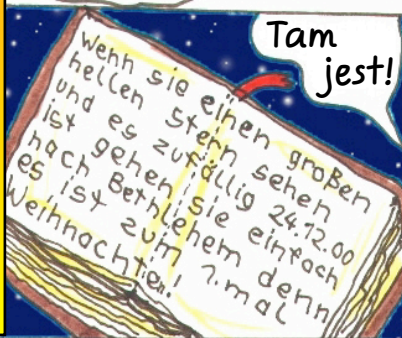 Tam
jest!
Wenn sie einen großen
hellen Stern sehen
und es zufällig 24.12.00
ist gehen sie einfach
nach Bethlehem denn
es ist zum 1.mal
Weihnachten!